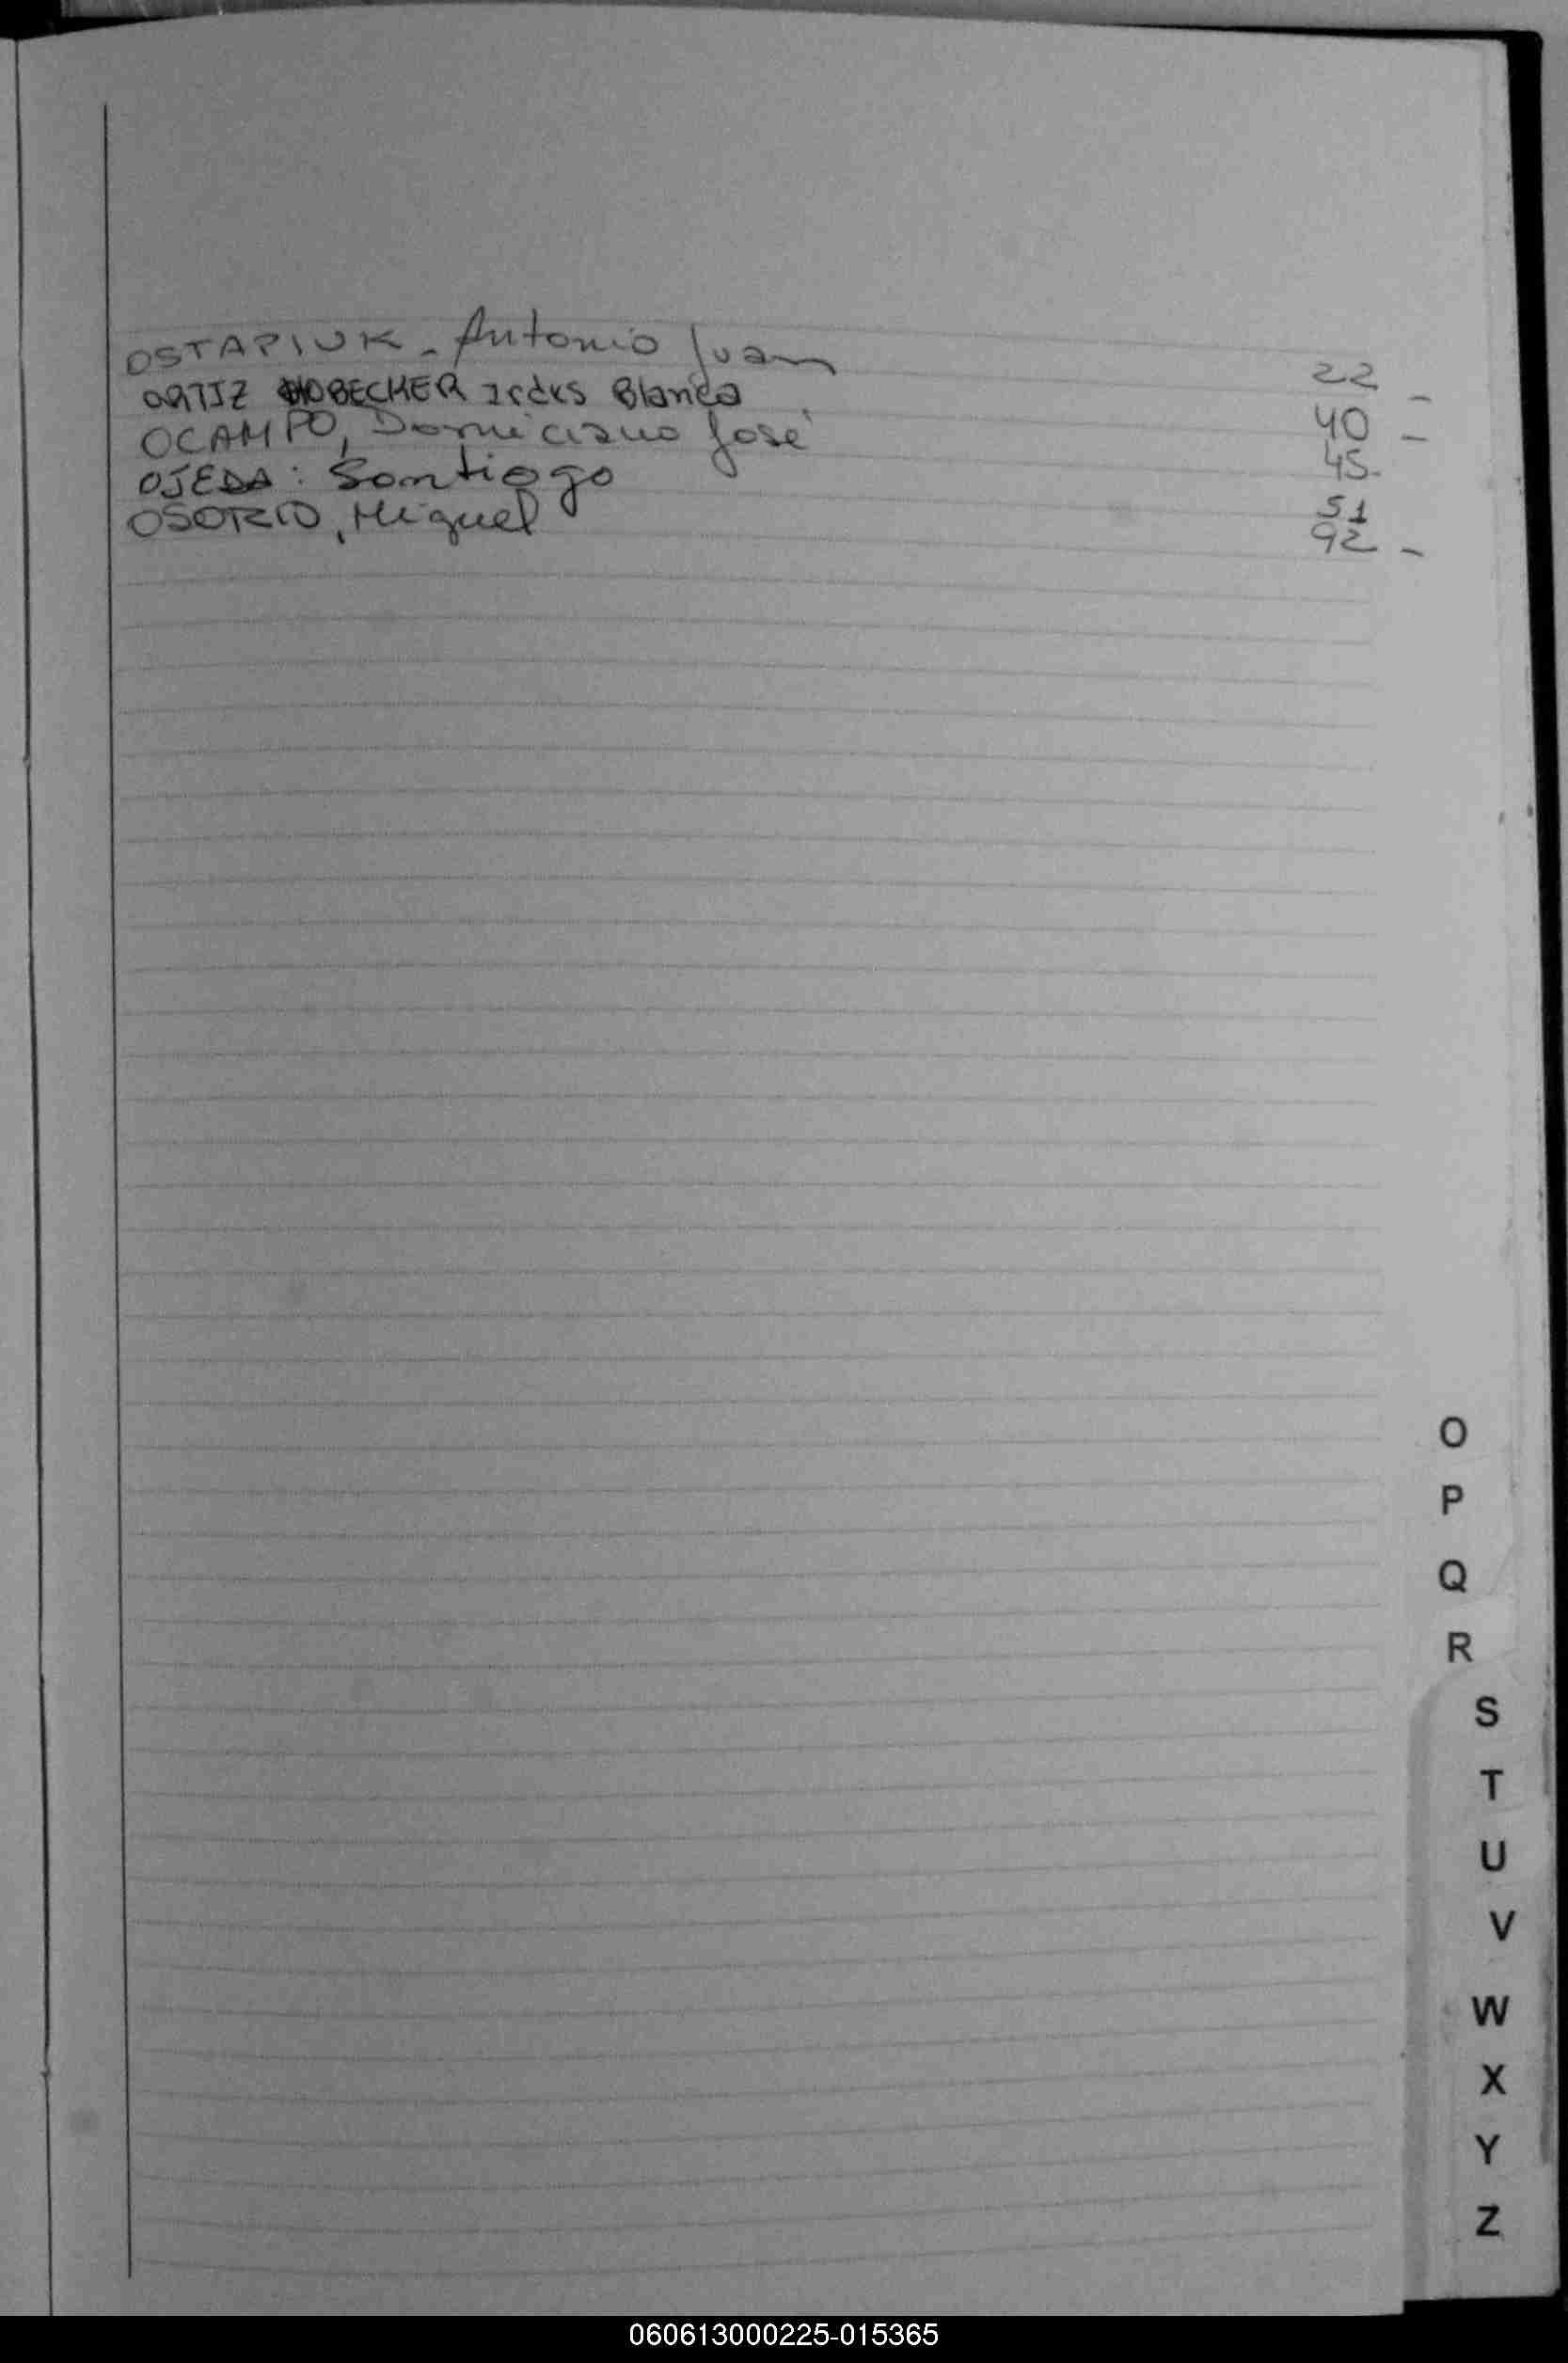 OSTAPIUK - Antonio Juan 22
ORTIZ HOBECKER Blanca 40 -
OCAMPO, Domiciano José 45 -
OJEDA: Santiago 51
OSORIO, Miguel 92 -
O
P
Q
R
S
T
U
V
W
X
Y
Z
060613000225-015365